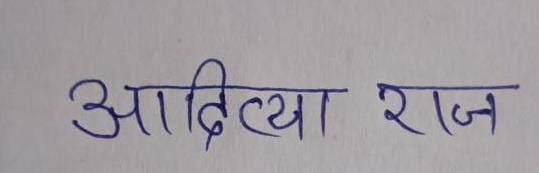 आदित्या राज